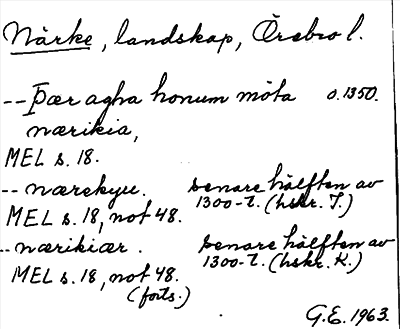 Närke, landskap, Örebro l.
-- Þær agha honum möta o. 1350.
nærikia,
MEL s. 18.
-- nærekyu. senare hälften av
MEL s. 18, not 48. 1300-t. (hskr. J.)
-- nærikiær. senare hälften av
MEL s. 18, not 48. 1300-t. (hskr. K.)
(forts.)
G.E. 1963.